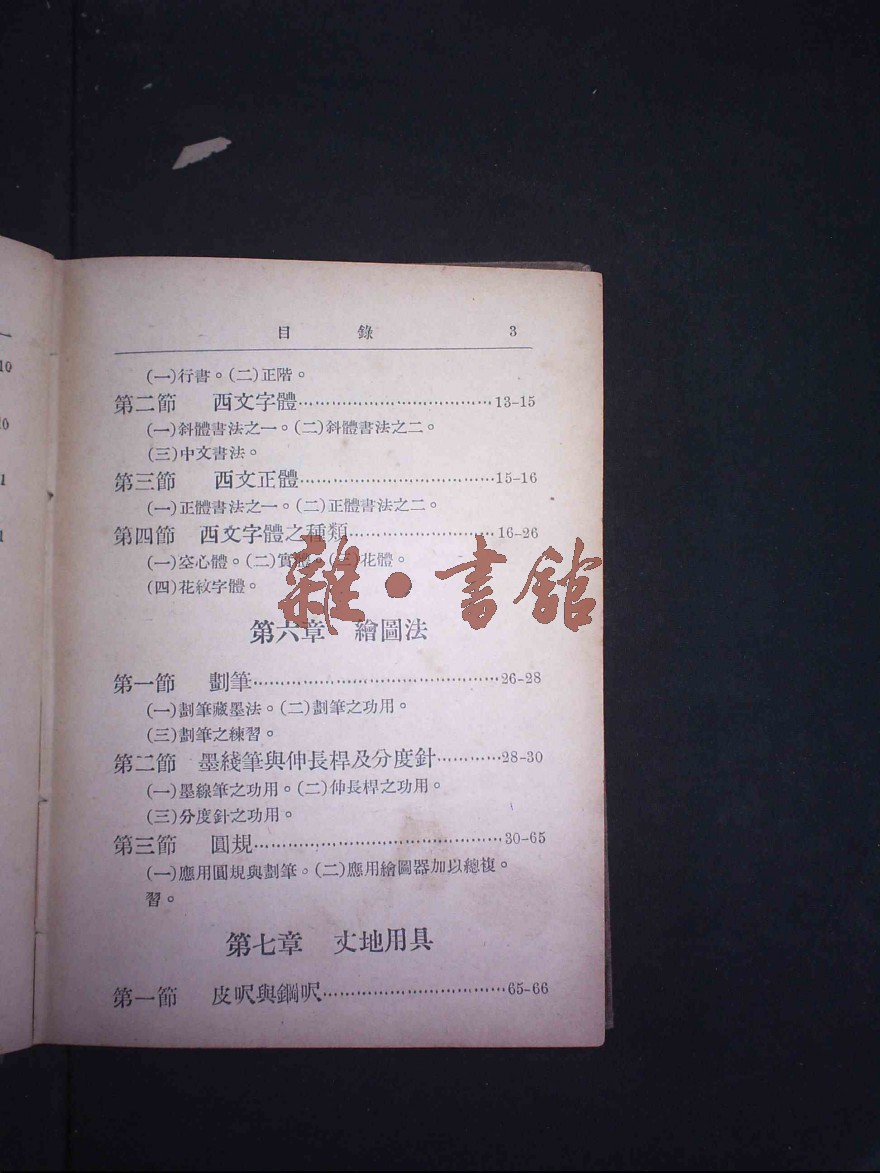 目錄 3
(一)行書。(二)正階。
第二節 西文字體……………………………13-15
(一)斜體書法之一。(二)斜體書法之二。
(三)中文書法。
第三節 西文正體……………………………15-16
(一)正體書法之一。(二)正體書法之二。
第四節 西文字體之種類……………………16-26
(一)空心體。(二)實體。(三)花體。
(四)花紋字體。
雜·書館
第六章 繪圖法
第一節 劃筆……………………………………26-28
(一)劃筆藏墨法。(二)劃筆之功用。
(三)劃筆之練習。
第二節 墨綫筆與伸長桿及分度針…………28-30
(一)墨線筆之功用。(二)伸長桿之功用。
(三)分度針之功用。
第三節 圓規……………………………………30-65
(一)應用圓規與劃筆。(二)應用繪圖器加以總複。
習。
第七章 丈地用具
第一節 皮呎與鋼呎……………………………65-66
10
10
1
1